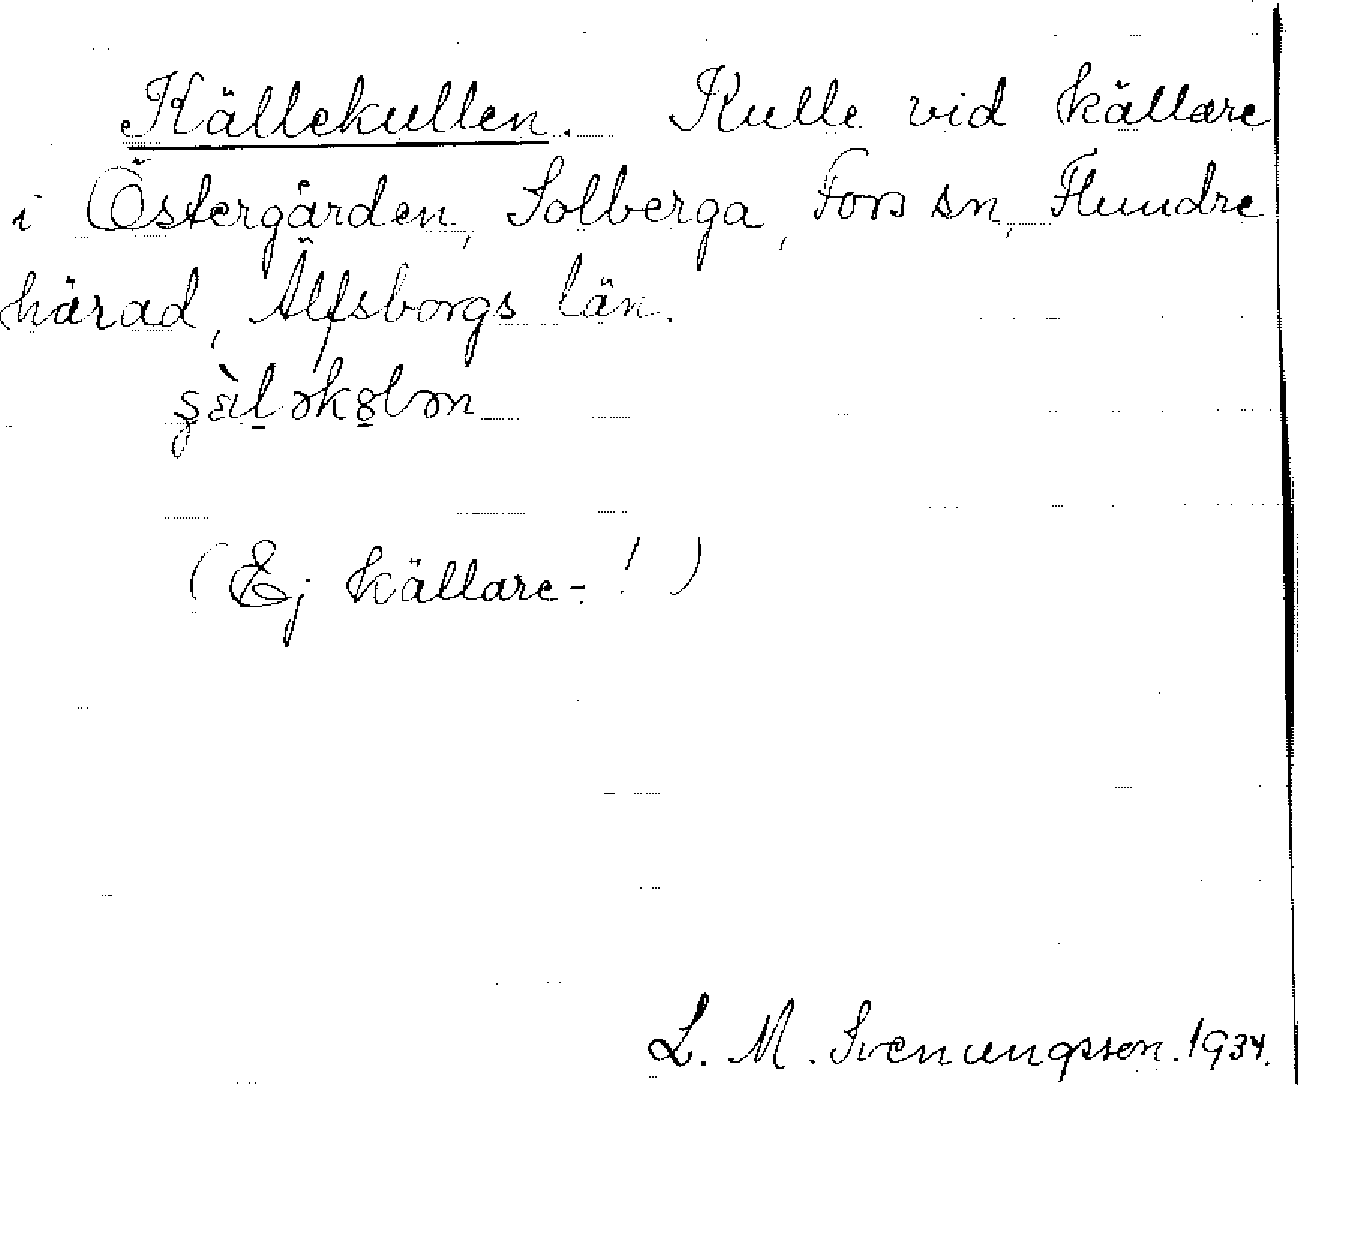 Källekullen. Kulle vid källare
i Östergården, Solberga, Fors sn, Flundre
härad, Älfsborgs län.
(Ej källare-!)
L. M. Svenungsson. 1934.